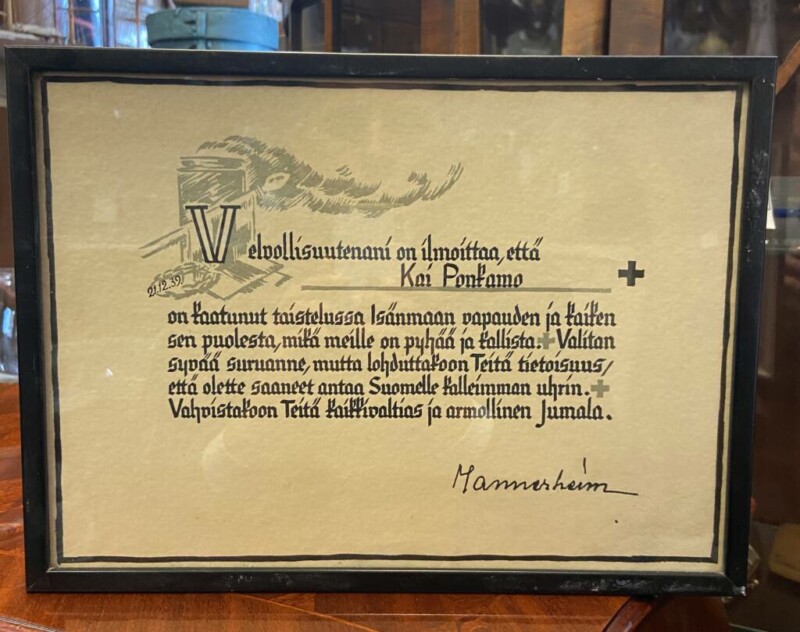 Velvollisuutenani on ilmoittaa, että
Kai Ponkamo
21.12.39
on kaatunut taistelussa Isänmaan vapauden ja kaiken
sen puolesta, mikä meille on pyhää ja kallista. Valitan
syvää suruanne, mutta lohduttakoon Teitä tietoisuus,
että olette saaneet antaa Suomelle kalleimman uhrin.
Vahvistakoon Teitä kaikkivaltias ja armollinen Jumala.
Mannerheim